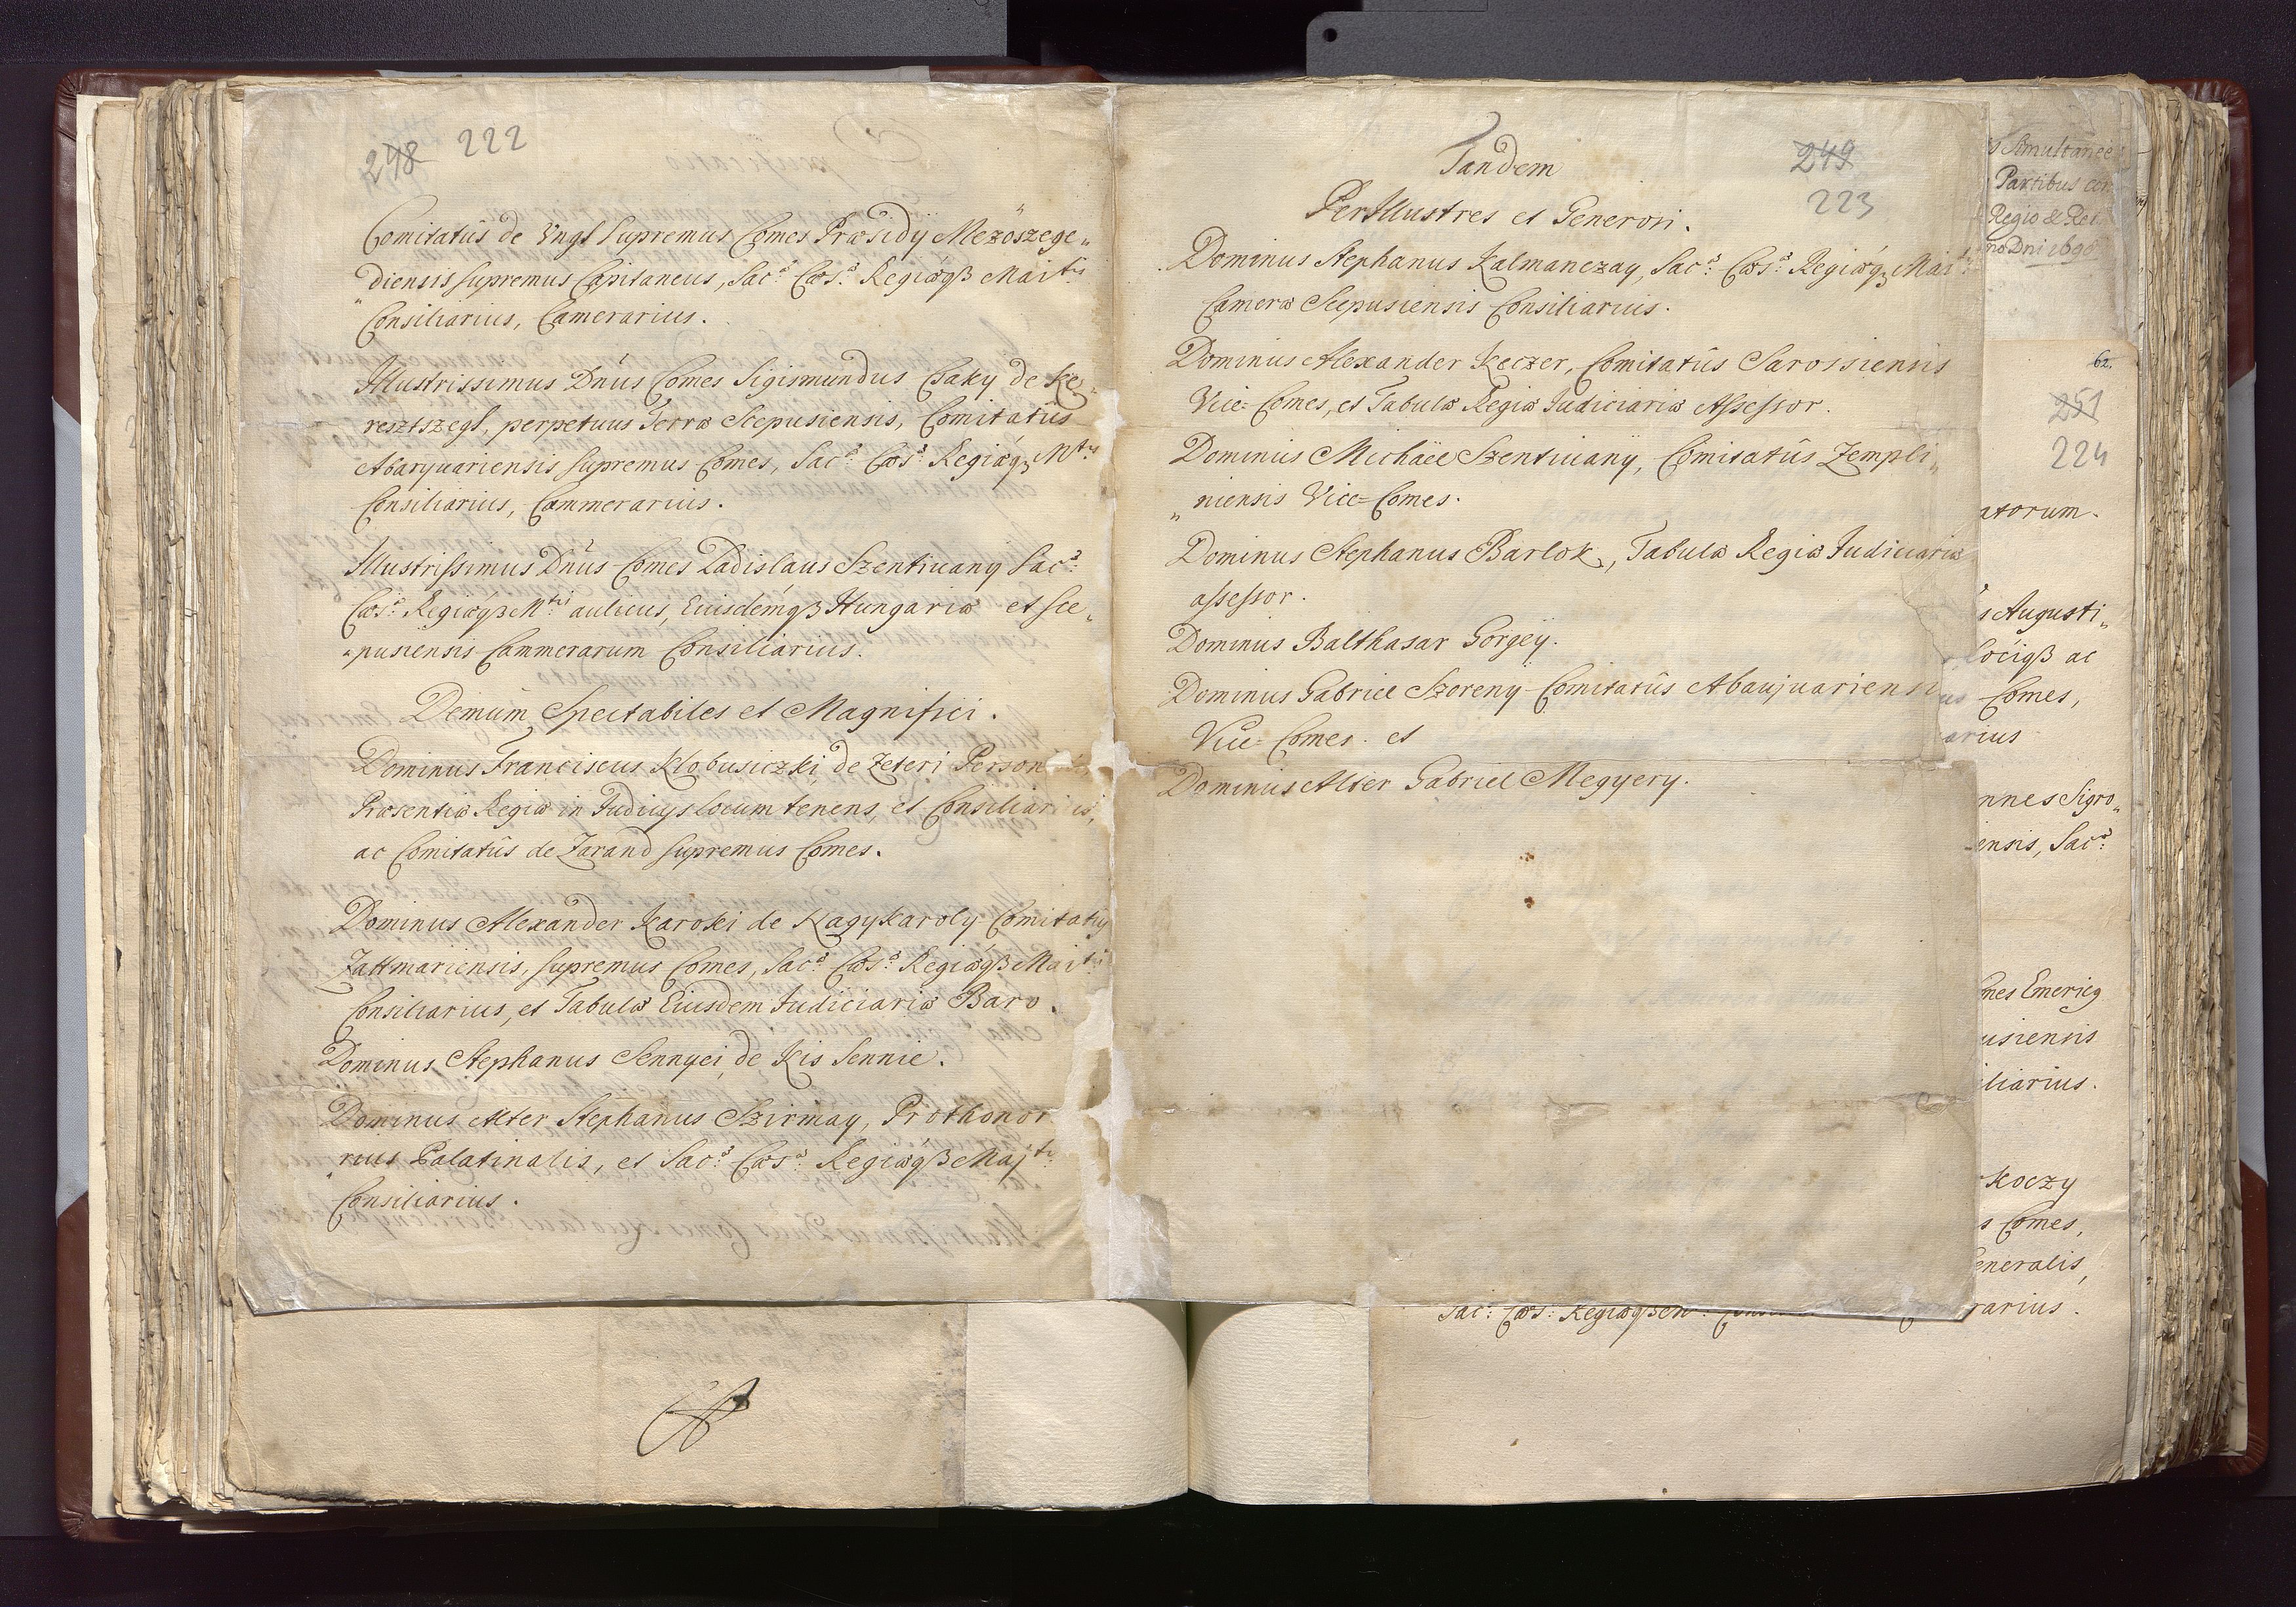 248 222
Comitatûs de Ungh Supremus Comes Præsidÿ Mezöszege„
„diensis supremus Capitaneus, Sac:ᵃ Cæs:ᵃ Regiæq₃ Mait:ⁱˢ
Consiliarius, Camerarius.
Illustrissimus Dn̄us Comes Sigismundus Csaky de Ke„
resztszegh, perpetuus Terræ Scepusiensis, Comitatûs
Abaryvariensis supremus Comes, Sac:ᵃ Cæs:ᵃ Regiæq₃ Mᵗⁱˢ
Consiliarius, Cammerarius.
Illustrissimus Dn̄us Comes Ladislaus Szentivany Sac:ᵃ
Cæs:ᵃ Regiæq₃ Mᵗⁱˢ aulicus, Eiusdémq₃ Hungariæ et Sce„
„pusiensis Cammerarum Consiliarius.
Demùm Spectabiles et Magnifici.
Dominus Franciscus Klobusiczki de Zeteri Person
Præsentiæ Regiæ in Judicÿs locum tenens, et Consiliarius,
ac Comitatûs de Zarand supremus Comes.
Dominus Alexander Karoki de Nagykaroly Comitatus
Zattmariensis, supremus Comes, Sac:ᵃ Cæs:ᵃ Regiæq₃ Mait:ⁱˢ
Consiliarius, et Tabulæ Eiusdem Judiciariæ Baro.
Dominus Stephanus Sennyei de Kis Sennie.
Dominus Alter Stephanus Szirmay, Prothonot
„rius Palatinalis, et Sac:ᵃ Cæs:ᵃ Regiæq₃ Majᵗⁱˢ
Consiliarius.
Tandem
249
223
Perillustres et Generosi.
Dominus Stephanus Kalmanczay, Sac:ᵃ Cæs:ᵃ Regiæq₃ Maiᵗⁱˢ
Cameræ Scepusiensis Consiliarius.
Dominus Alexander Keczer, Comitatûs Sarossiensis
Vice-Comes, et Tabulæ Regiæ Judiciariæ Assessor.
Dominus Michäel Szentivanÿ, Comitatûs Zempli„
„niensis Vice-Comes.
Dominus Stephanus Barlok, Tabulæ Regiæ Judiciariæ
assessor.
Dominus Balthasar Görgeÿ.
Dominus Gabriel Szöreny Comitatûs Abaujvariensi
Vice-Comes. et
Dominus Alter Gabriel Megyery.
Simultanee
Partibus
Regio &
62.
251
224
atorum.
s Augusti„
Locíq₃ ac
us Comes,
arius
nnes Sigro„
ensis, Sac:ᵃ
mes Emericg
usiensis
iliarius.
koczy
s Comes,
eneralis,
Sac:ᵃ Cæs:ᵃ Regiæq₃
rarius.